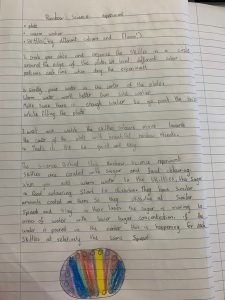 Rainbow Science experiment
• plate
• warm water
• Skittles (try different colours and flavours)
1. Grab your plate and organise the Skittles in a circle
around the edge of the plate. Try and different colour
patterns each time when doing the experiment
2. Gently pour water in the center of the plate.
Warm water works better than cold water.
Make sure there is enough water to go past the
while filling the plate
3. Wait and watch the skittles colours move towards
the center of the with beautiful rainbow streaks.
The results to be quick and easy.
The science behind this Rainbow Science experiment
Skittles are coated with sugar and food colouring
when you add warm water to the Skittles, the Sugar
& food colouring start to dissolve. They have Similar
amounts coated on them so they dissolve at Similar
Speed and stay in their lanes. The sugar is moving to
areas of water with lower sugar concentration, if the
water is poured in the center this is happening for each
Skittles at relatively the same speed.